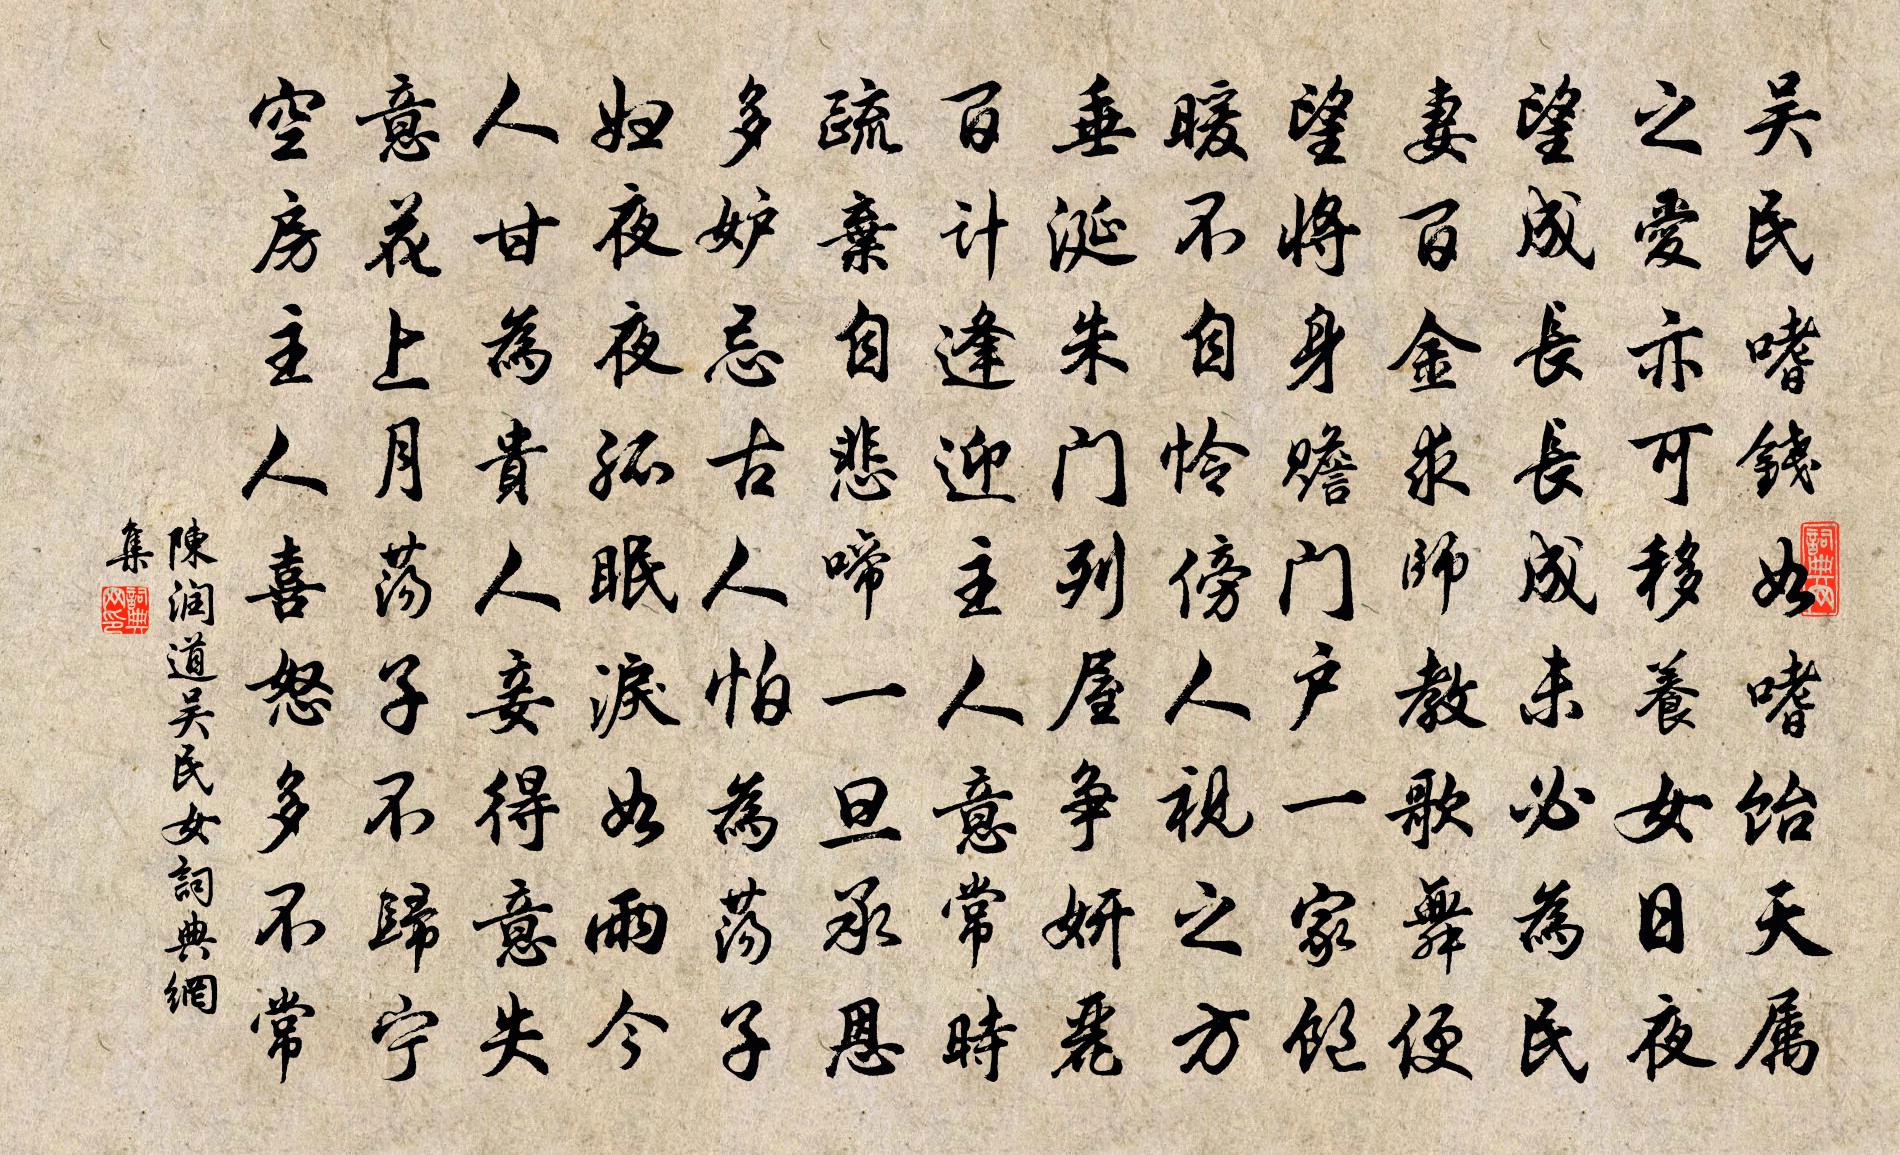 吴民嗜錢如嗜飴天属
之愛亦可移養女日夜
望成長長成未必為民
妻百金求師教歌舞便
望將身贍门户一家飽
暖不自怜傍人視之方
垂涎朱门列屋争妍麗
百计逢迎主人意常時
疏棄自悲啼一旦承恩
多妒忌古人怕為荡子
妇夜夜孤眠淚如雨今
人甘為貴人妾得意失
意花上月荡子不歸宁
空房主人喜怒多不常
陳润道吴民女詞典網
集
詞典网
詞典网印